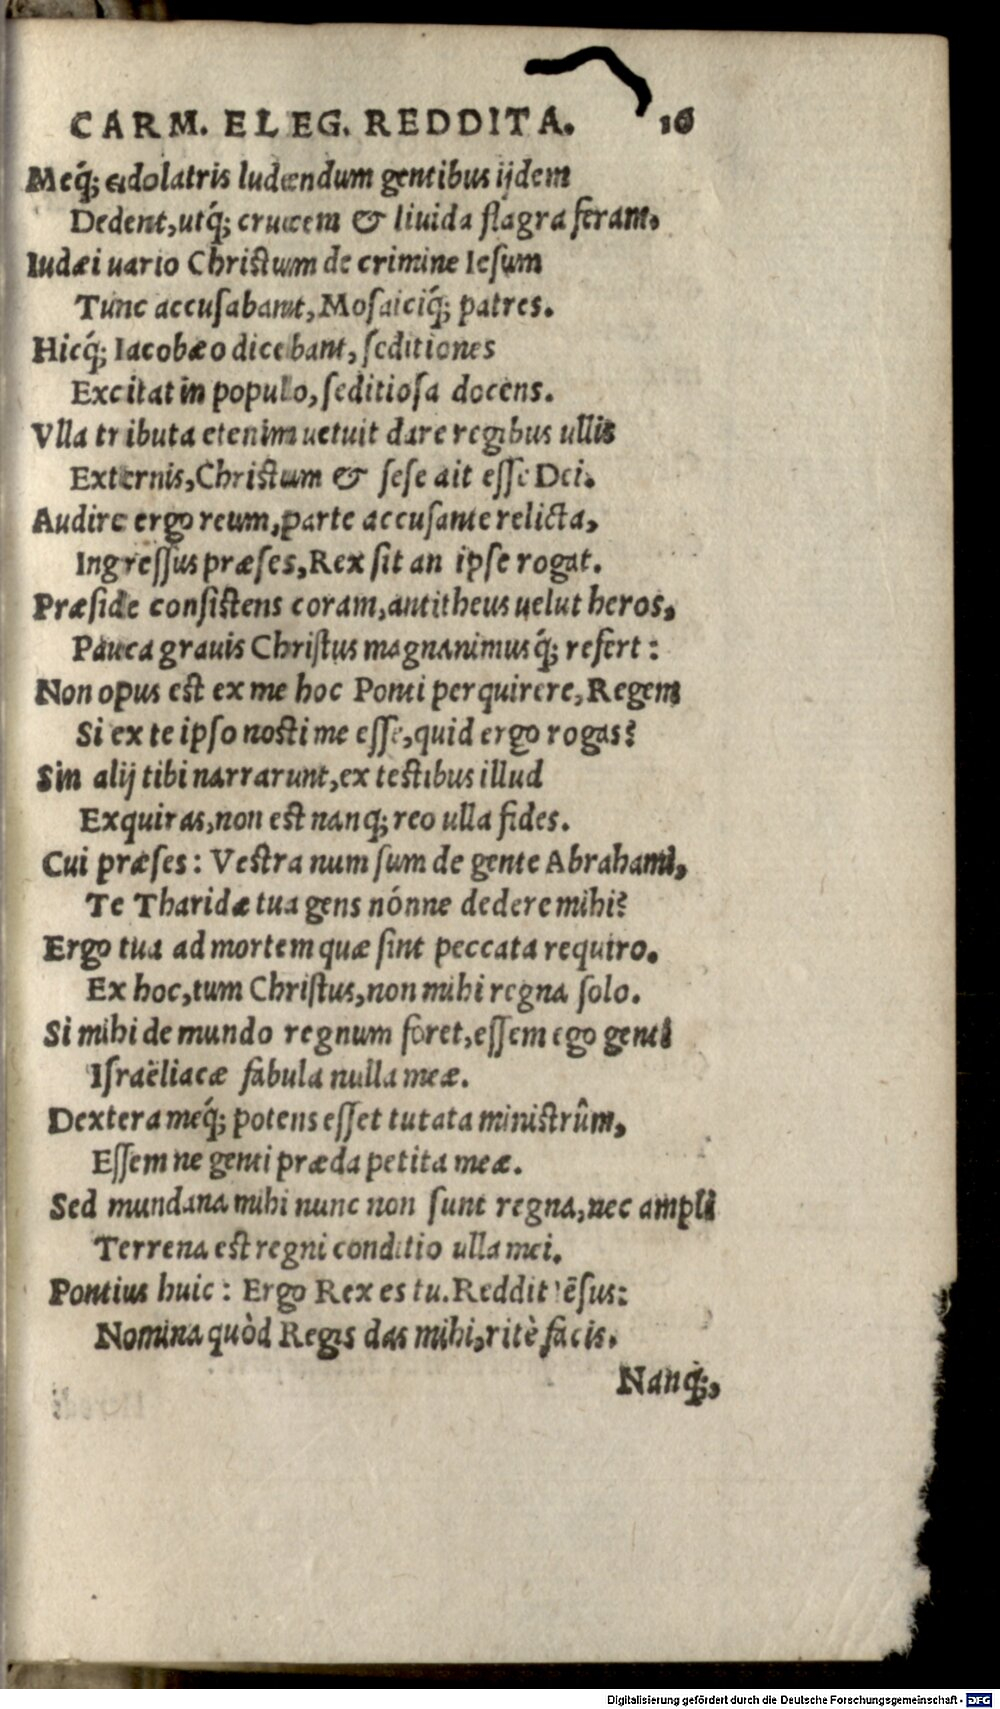 CARM. ELEG. REDDITA. 16
Meq́; edolatris ludendum gentibus ijdem
Dedent, utq́; crucem & liuida flagra feram.
Iudæi uario Christum de crimine Iesum
Tunc accusabant, Mosaiciq́; patres.
Hicq́; Iacobæo dicebant, seditiones
Excitat in populo, seditiosa docens.
Vlla tributa etenim uetuit dare regibus ullis
Externis, Christum & sese ait esse Dei.
Audire ergo reum, parte accusante relicta,
Ingressus præses, Rex sit an ipse rogat.
Præside consistens coram, antitheus uelut heros,
Pauca grauis Christus magnanimusq́; refert:
Non opus est ex me hoc Ponti perquirere, Regem
Si ex te ipso nosti me esse, quid ergo rogas?
Sin alij tibi narrarunt, ex testibus illud
Exquiras, non est nanq; reo ulla fides.
Cui præses: Vestra num sum de gente Abrahami,
Te Tharidæ tua gens nónne dedere mihi?
Ergo tua ad mortem quæ sint peccata requiro.
Ex hoc, tum Christus, non mihi regna solo.
Si mihi de mundo regnum foret, essem ego genti
Israëliacæ fabula nulla meæ.
Dextera meq́; potens esset tutata ministrûm,
Essem ne genti præda petita meæ.
Sed mundana mihi nunc non sunt regna, nec ampli
Terrena est regni conditio ulla mei.
Pontius huic: Ergo Rex es tu. Reddit ēsus:
Nomina quòd Regis das mihi, ritè facis.
Nanq́;,
Digitalisierung gefördert durch die Deutsche Forschungsgemeinschaft - DFG